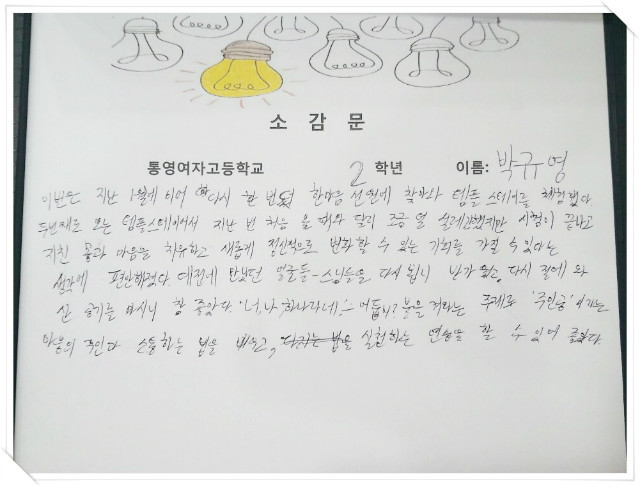 소 감 문
통영여자고등학교 2 학년 이름: 박규영
이번은 지난 1월에 이어 다시 한 번 한마음 선원에 찾아와 템플스테이를 체험했다.
두번째로 오는 템플스테이여서 지난 번 처음 올 때와 달리 조금 덜 설레긴했지만 시험이 끝나고
지친 몸과 마음을 치유하고 새롭게 정신적으로 변화할 수 있는 기회를 가질 수 있다는
생각에 편안해졌다. 예전에 만났던 얼굴들-스님들을 다시 뵙니 반가웠고, 다시 절에 와
신 공기를 마시니 참 좋았다. '너,나,하나라네', - 어둡니? 불을 켜라는 주제로 '주인공'이라는
마음의 주인과 소통하는 법을 배우고, 실험하는 연습을 할 수 있어 좋았다.